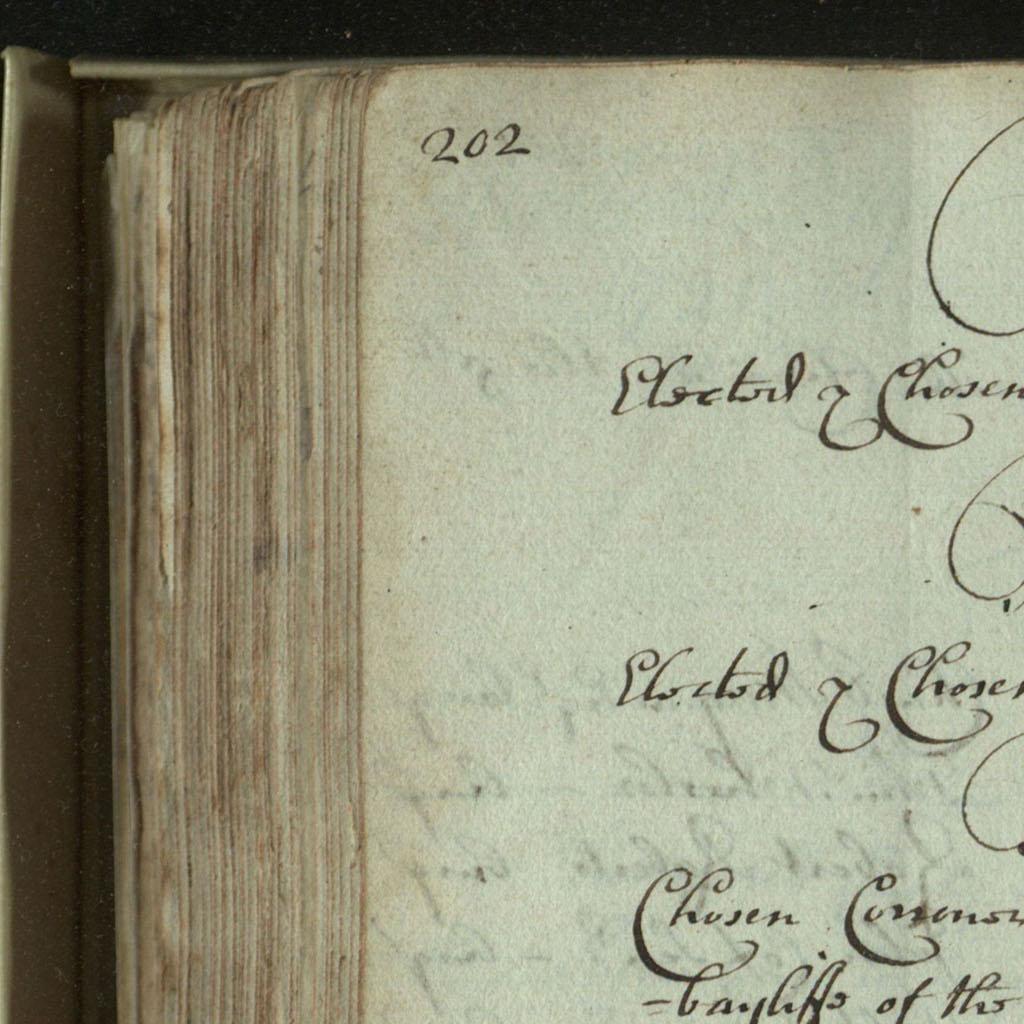 202
Elected & Chosen
Elected & Chosen
Chosen
=bayliffe of the